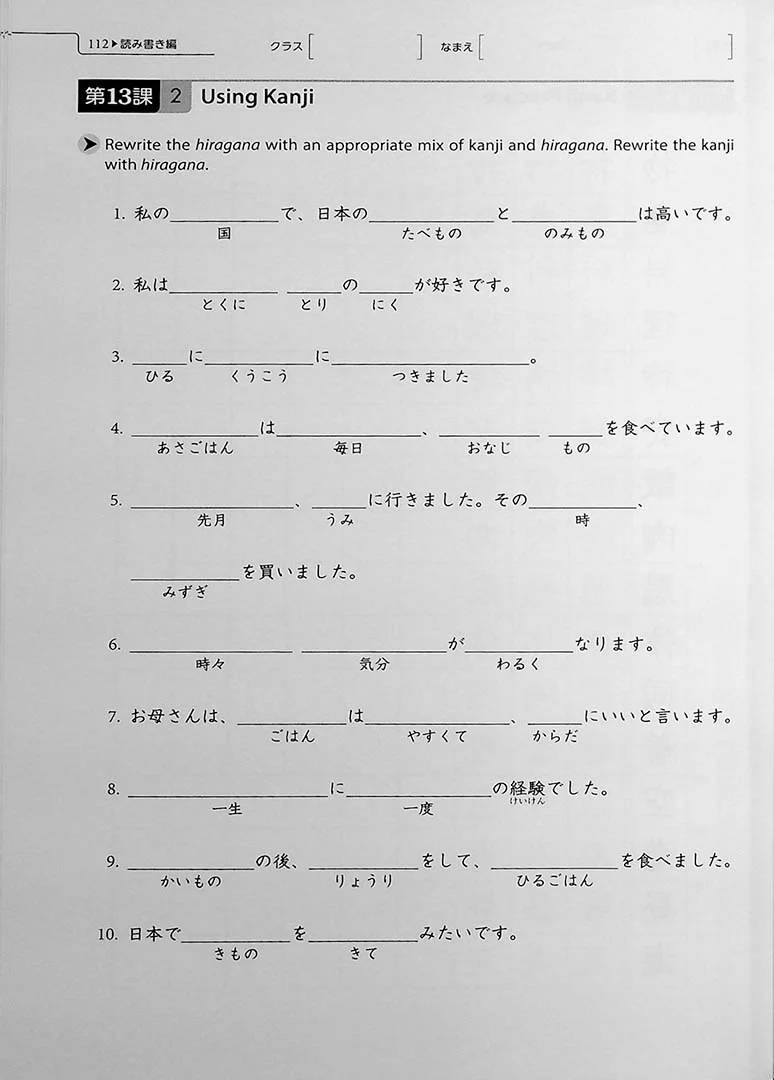 112▶読み書き編 クラス[ ] なまえ[ ]
第13課 2 Using Kanji
➤ Rewrite the hiragana with an appropriate mix of kanji and hiragana. Rewrite the kanji
with hiragana.
1. 私の____で、日本の____と____は高いです。
国 たべもの のみもの
2. 私は____ ____の____が好きです。
とくに とり にく
3. ____に____に____。
ひる くうこう つきました
4. ____は____、____ ____を食べています。
あさごはん 毎日 おなじ もの
5. ____、____に行きました。その____、
先月 うみ 時
____を買いました。
みずぎ
6. ____ ____が____なります。
時々 気分 わるく
7. お母さんは、____は____、____にいいと言います。
ごはん やすくて からだ
8. ____に____の経験でした。
一生 一度 けいけん
9. ____の後、____をして、____を食べました。
かいもの りょうり ひるごはん
10. 日本で____を____みたいです。
きもの きて